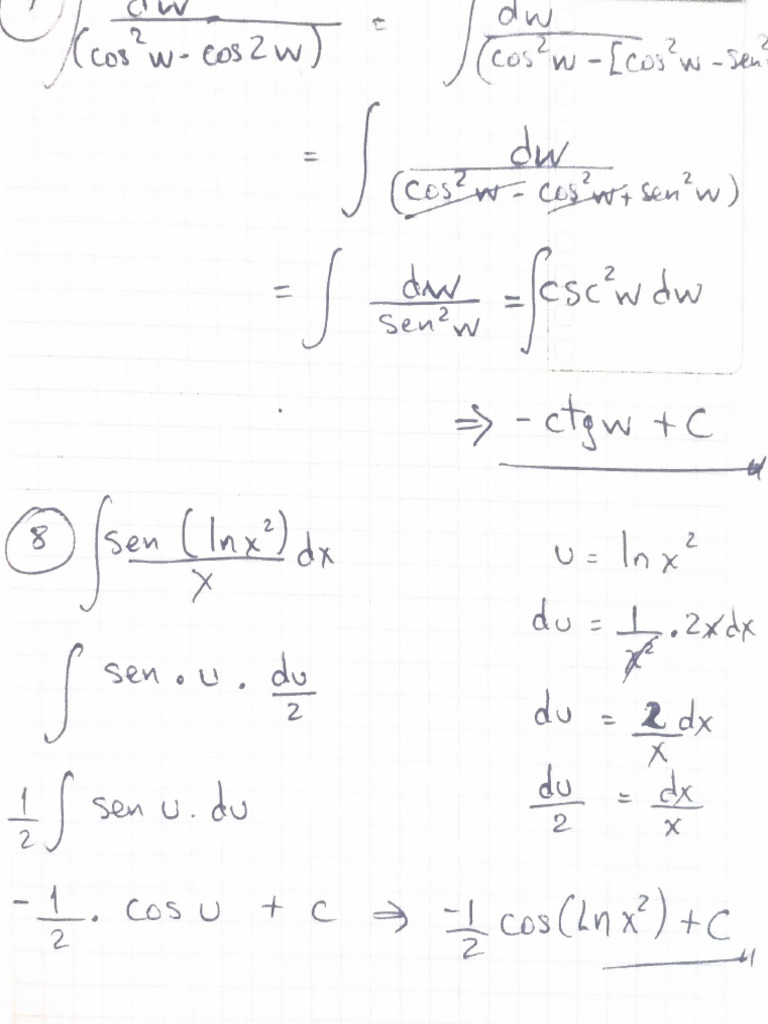 ∫ dw/(cos²w - cos2w) = ∫ dw/(cos²w - [cos²w - sen²
= ∫ dw/(cos²w - cos²w + sen²w)
= ∫ dw/sen²w = ∫csc²w dw
⇒ -ctgw + C
⑧ ∫ sen (ln x²)/x dx
u = ln x²
∫ sen . u . du/2
du = 1/x² . 2x dx
du = 2/x dx
1/2 ∫ sen u . du
du/2 = dx/x
-1/2 . cos u + c ⇒ -1/2 cos(Ln x²) + C